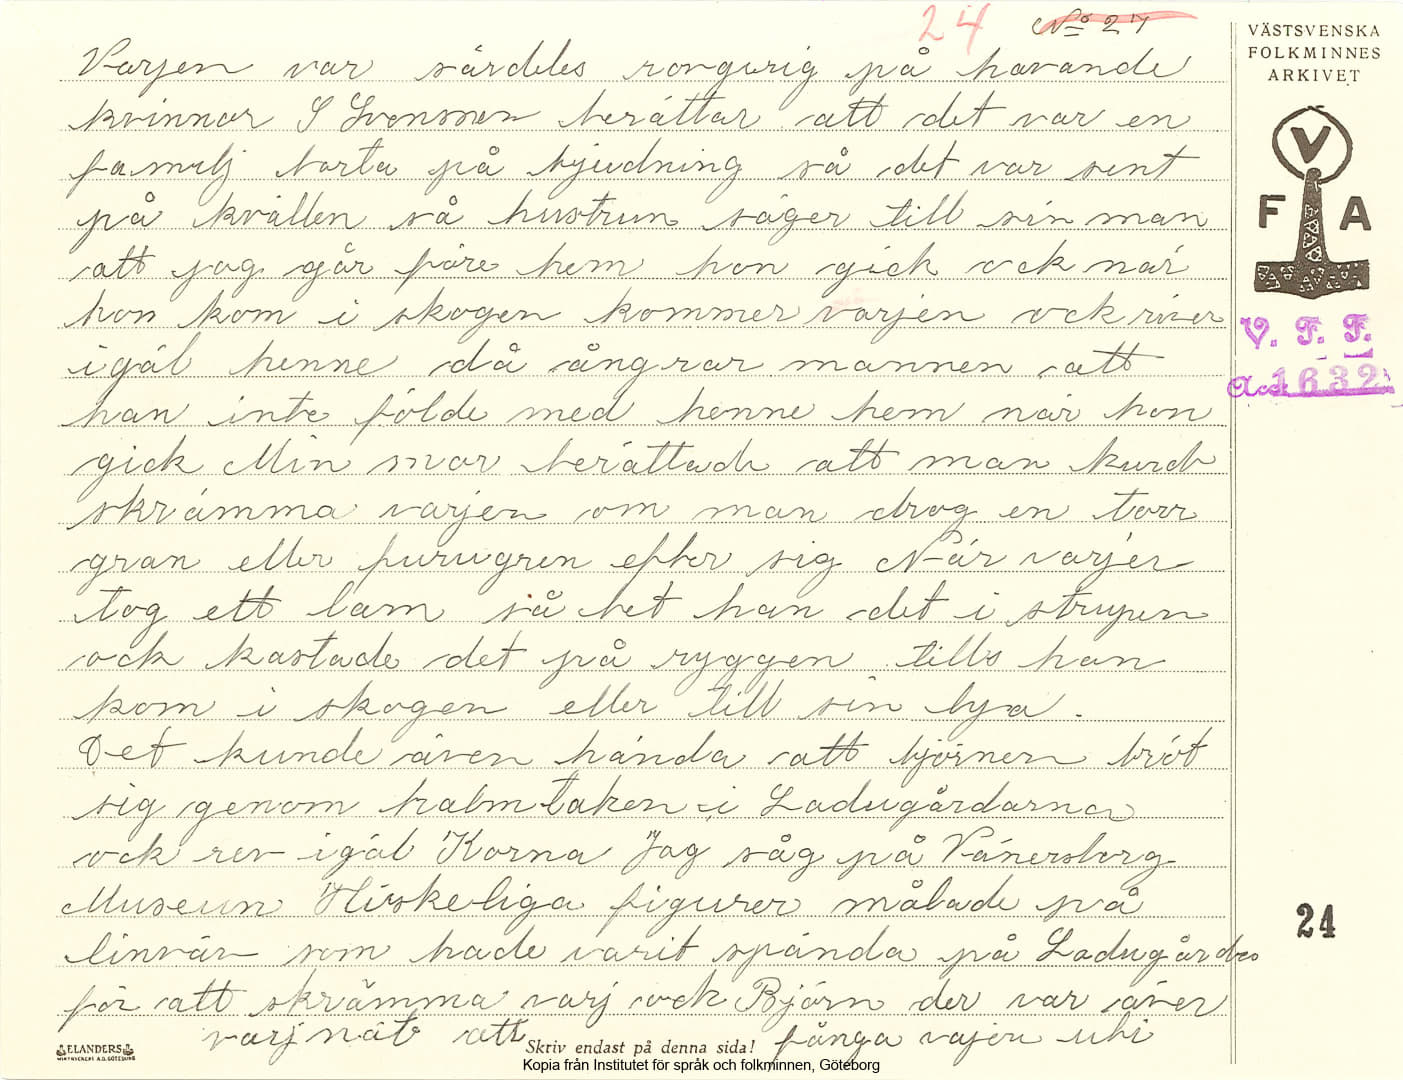 24 No 27
Varjen var särdeles rovgirig på havande
kvinnor S Svensson berättar att det var en
familj borta på bjudning så det var sent
på kvällen så hustrun säger till sin man
att jag går före hem hon gick ock när
hon kom i skogen kommer varjen ock river
igäl henne då ångrar mannen att
han inte földe med henne hem när hon
gick Min mor berättade att man kunde
skrämma varjen om man drog en torr
gran eller furugren efter sig När varjen
tog ett lam så bet han det i strupen
ock kastade det på ryggen tills han
kom i skogen eller till sin lya.
Det kunde även hända att björnen bröt
sig genom halmtaken i Ladugårdarna
ock rev igäl Korna Jag såg på Vänersborg
Museum Hiskeliga figurer målade på
linvär som hade varit spända på Ladugårdes
för att skrämma varj ock Björn der var även
varjnät att fånga vajen uti
VÄSTSVENSKA
FOLKMINNES
ARKIVET
V
F A
V. F. F.
Acc 1632
24
ELANDERS
Skriv endast på denna sida!
Kopia från Institutet för språk och folkminnen, Göteborg